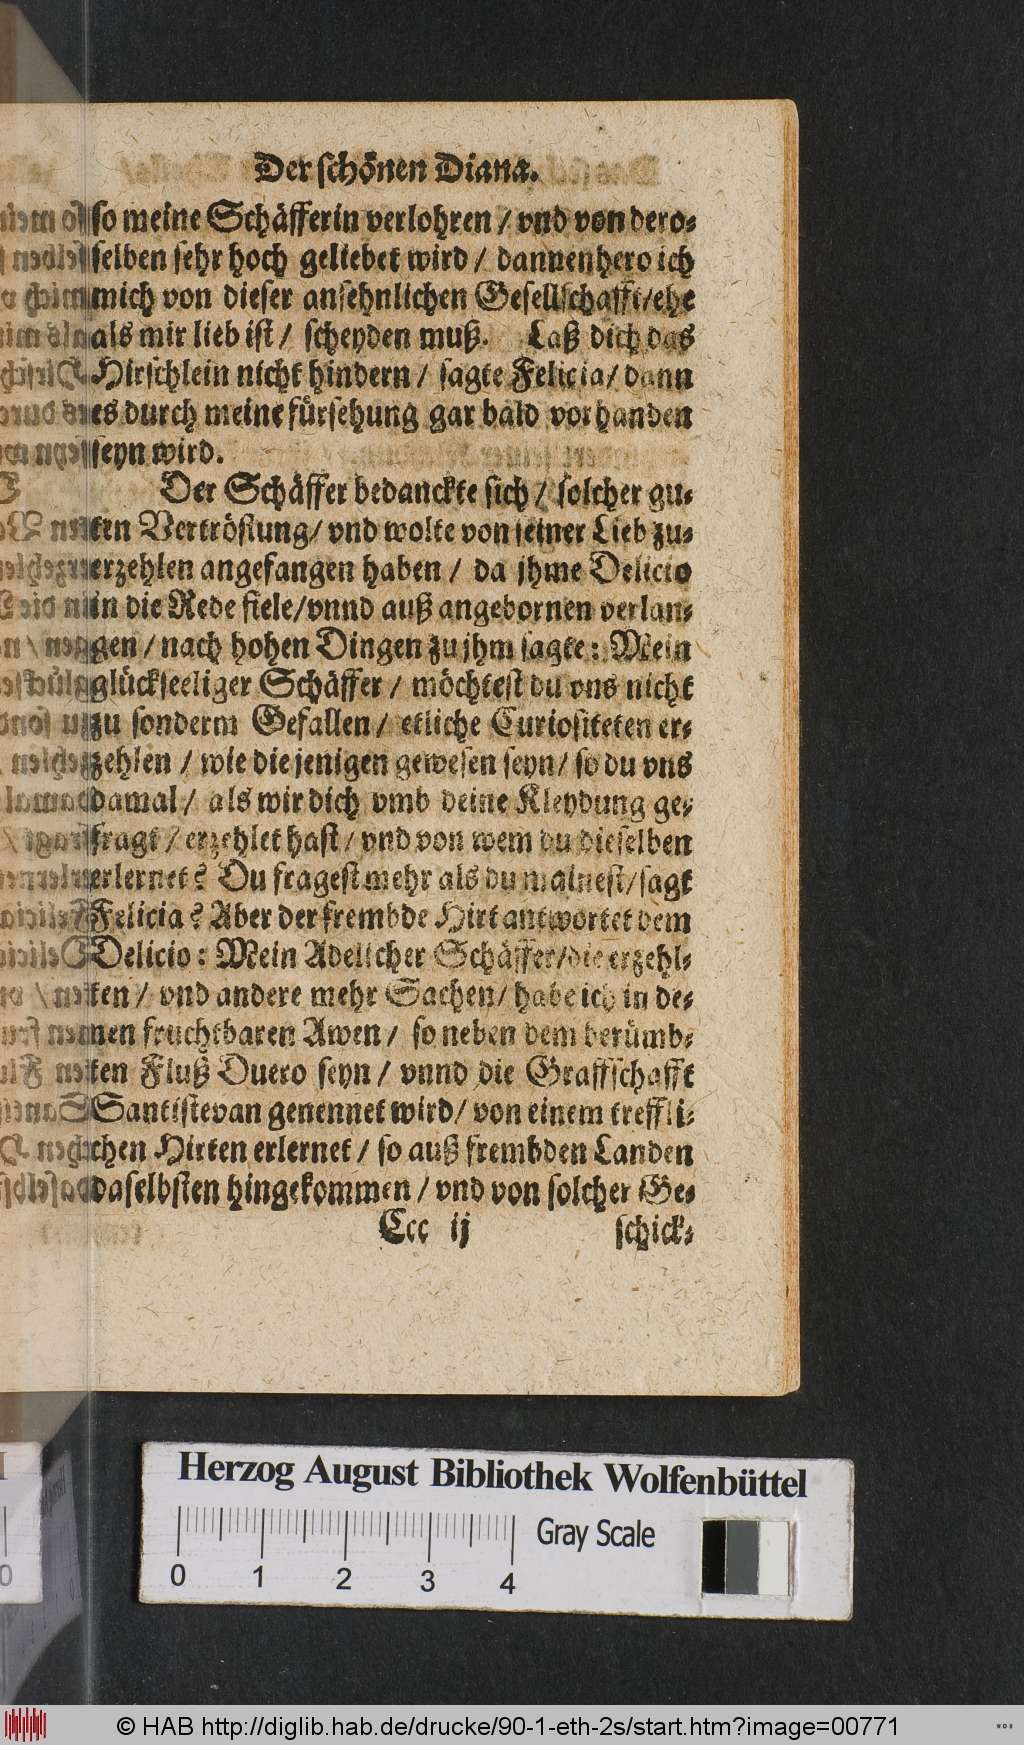 Der schönen Diana.
so meine Schäfferin verlohren / vnd von dero-
selben sehr hoch geliebet wird / dannenhero ich
mich von dieser ansehnlichen Gesellschafft/ehe
als mir lieb ist / scheyden muß. Laß dich das
Hirschlein nicht hindern / sagte Felicia/ dann
es durch meine fürsehung gar bald vorhanden
seyn wird.
Der Schäffer bedanckte sich / solcher gu-
ten Vertröstung/ vnd wolte von seiner Lieb zu-
erzehlen angefangen haben / da jhme Delicio
in die Rede fiele/vnnd auß angebornen verlan-
gen / nach hohen Dingen zu jhm sagte: Mein
glückseeliger Schäffer / möchtest du vns nicht
zu sonderm Gefallen / etliche Curiositeten er-
zehlen / wie die jenigen gewesen seyn/ so du vns
damal / als wir dich vmb deine Kleydung ge-
fragt / erzehlet hast / vnd von wem du dieselben
erlernet? Du fragest mehr als du mainest/sagt
Felicia? Aber der frembde Hirt antwortet dem
Delicio: Mein Adelicher Schäffer/die erzehl-
ten / vnd andere mehr Sachen/ habe ich in de-
nen fruchtbaren Awen / so neben dem berümb-
ten Fluß Duero seyn / vnnd die Graffschafft
Santistevan genennet wird/ von einem treffli-
chen Hirten erlernet / so auß frembden Landen
daselbsten hingekommen / vnd von solcher Ge-
Ccc ij schick-
Herzog August Bibliothek Wolfenbüttel
Gray Scale
0 1 2 3 4
© HAB http://diglib.hab.de/drucke/90-1-eth-2s/start.htm?image=00771